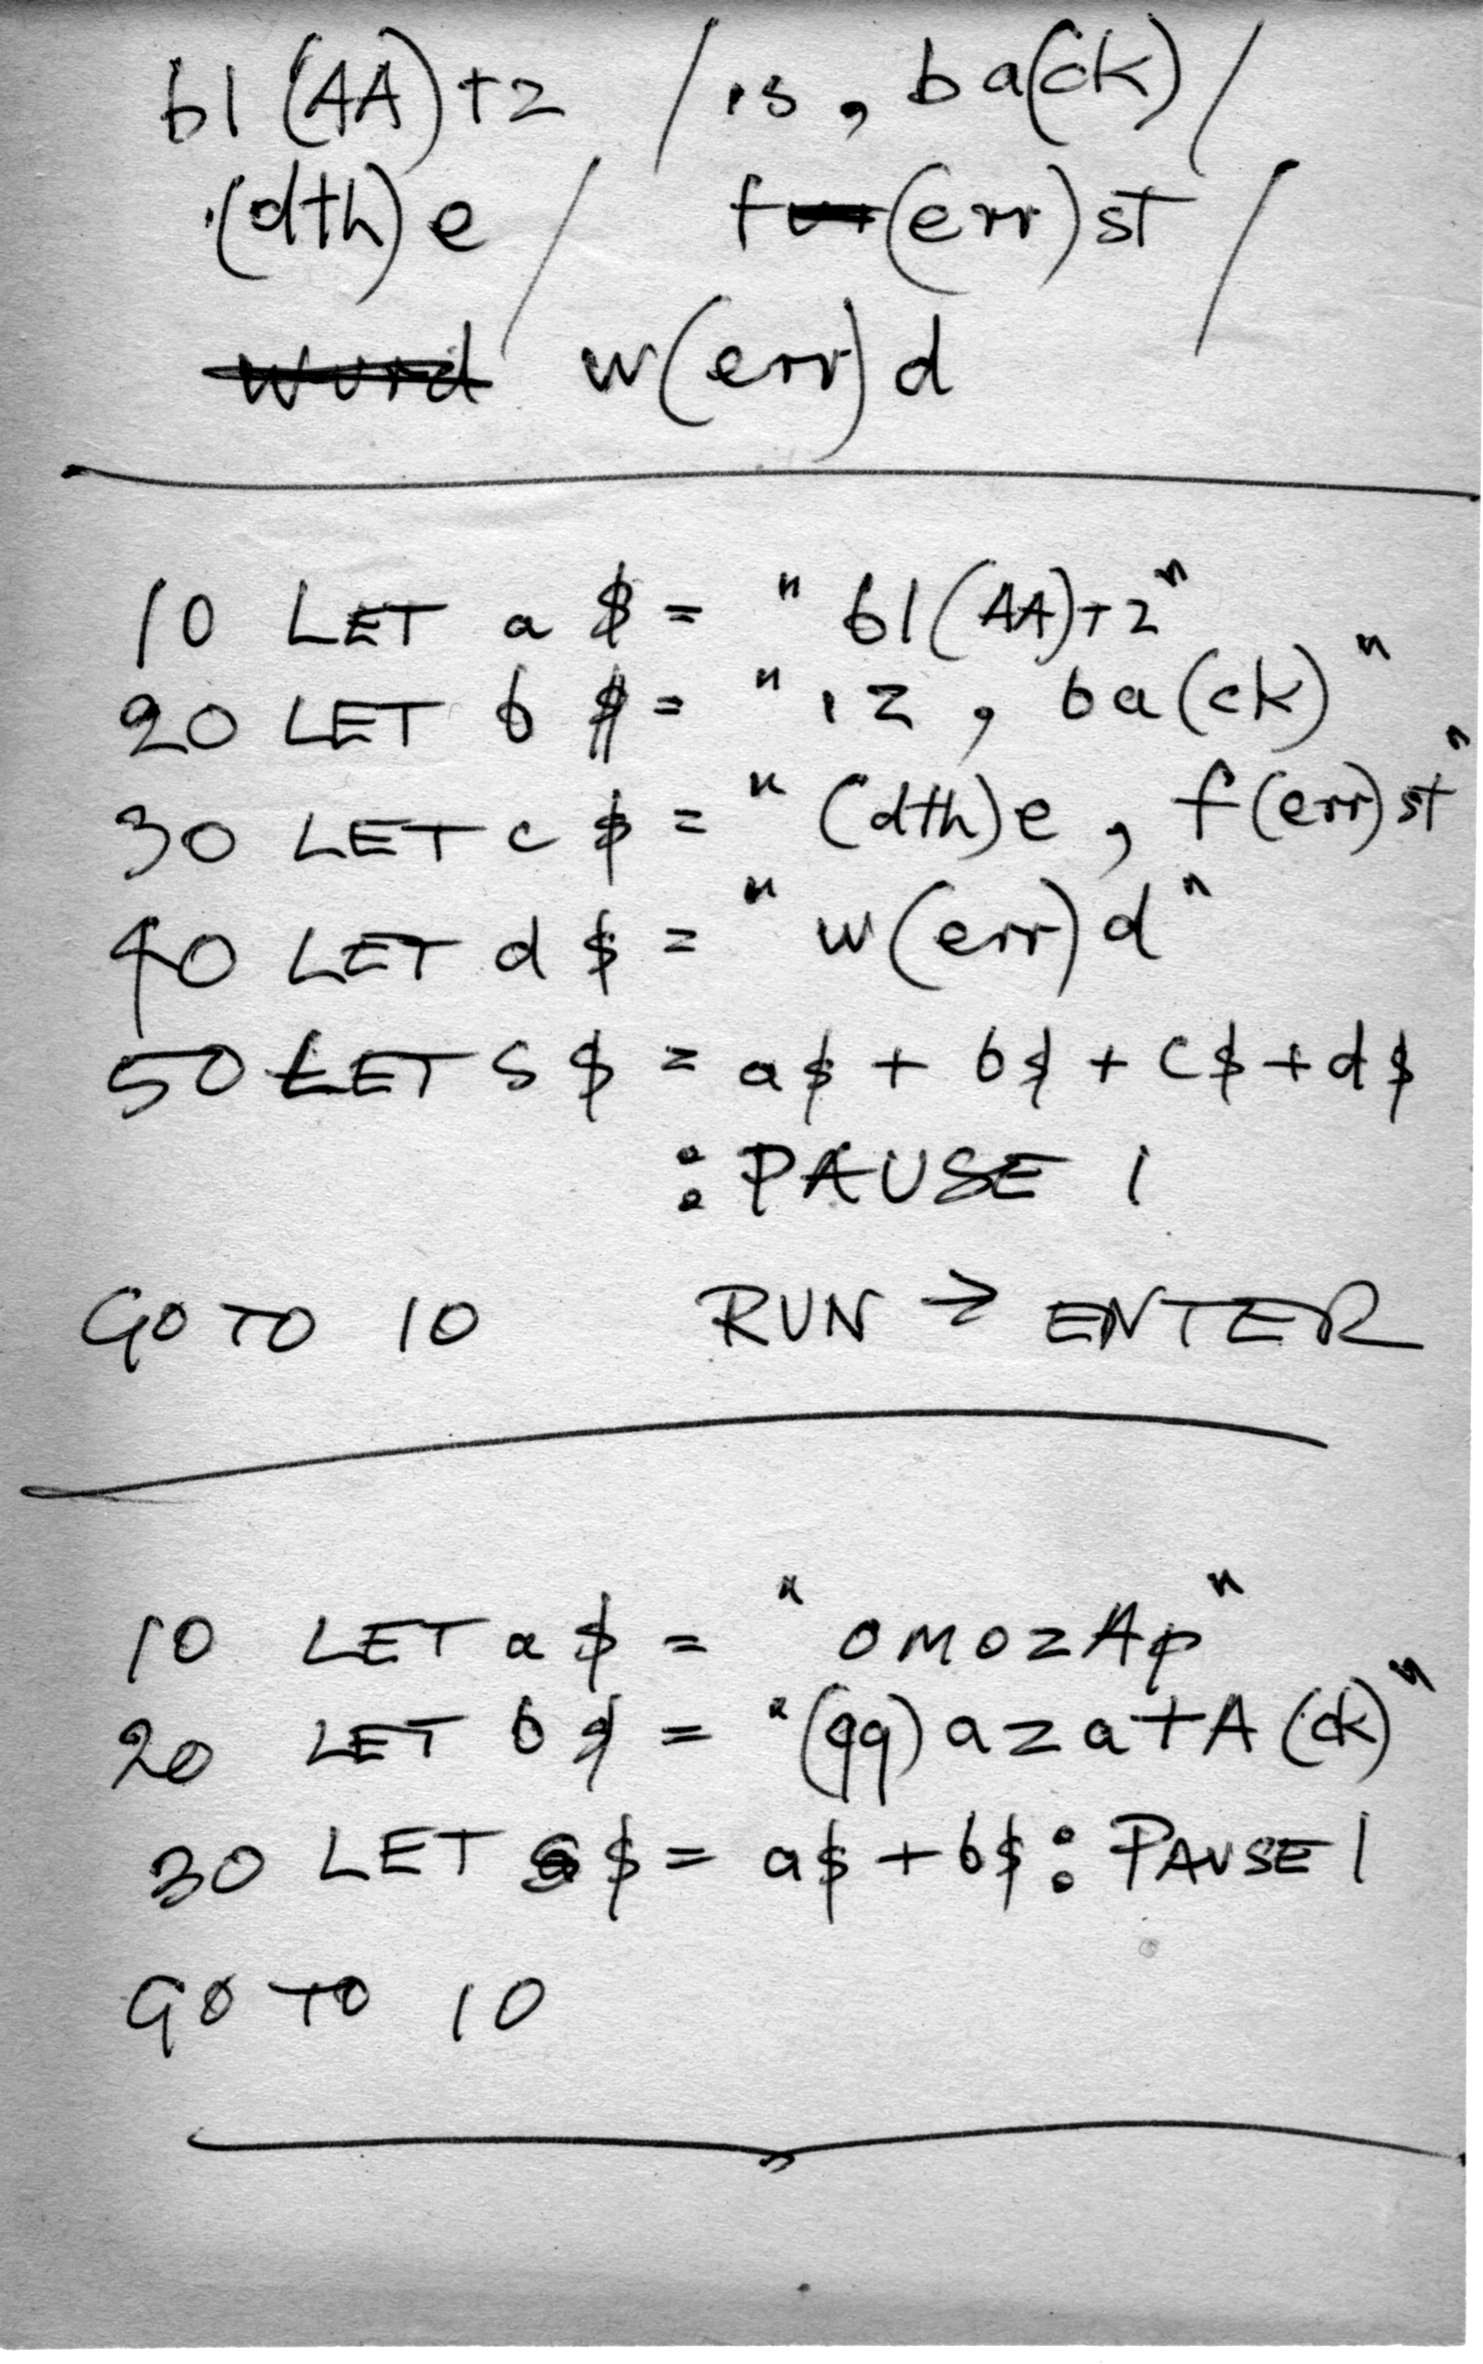 bl(AA)tz / is, ba(ck) /
(dth)e / f(err)st /
wurd w(err)d
10 LET a$ = "bl(AA)tz"
20 LET b$ = "iz, ba(ck)"
30 LET c$ = "(dth)e, f(err)st"
40 LET d$ = "w(err)d"
50 LET s$ = a$ + b$ + c$ + d$
: PAUSE 1
GO TO 10 RUN → ENTER
10 LET a$ = "omozAp"
20 LET b$ = "(gg)azatA(ck)"
30 LET s$ = a$ + b$ : PAUSE 1
GO TO 10